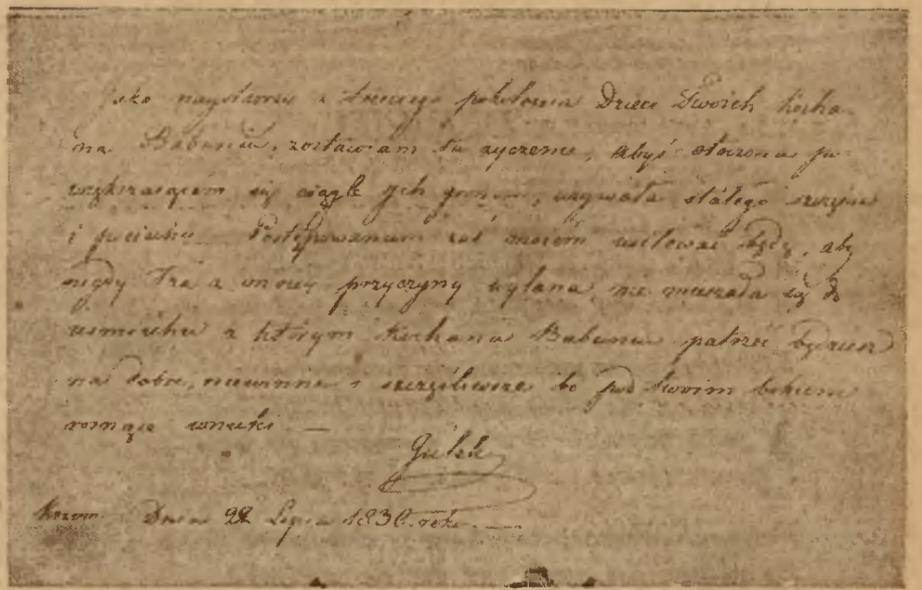 Jako naystarszy z trzeciego pokolenia Dzieci Twoich kocha-
na Babuniu, zostawiam tu życzenie, abyś otoczona po-
większaiącem się ciągle ich gronem, używała stałego szczęścia
i pociechy. Postępowaniem zaś moiem usiłować będę, aby
nigdy łza z moiey przyczyny wylana, nie mieszała się do
uśmiechu z którym Kochana Babunia patrzeć będziesz
na dobre, niewinne i szczęśliwe bo pod twoim bokiem
rosnące wnuki —
Dnia 22 Lipca 1830. roku —